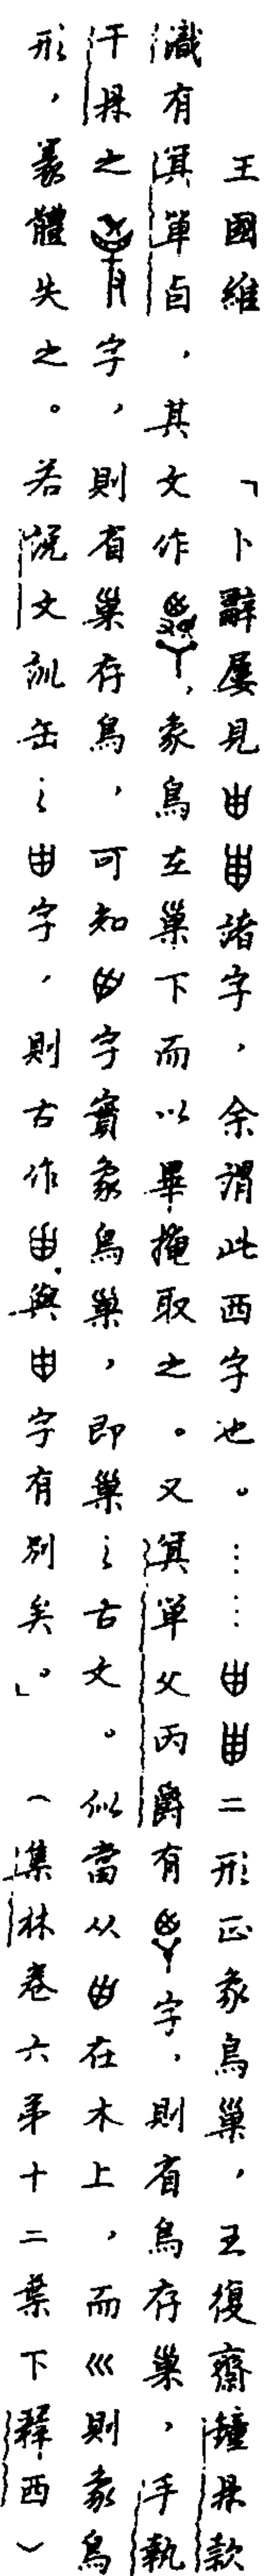 王國維　「卜辭屢見諸字，余謂此西字也。……二形正象鳥巢，王復齋鐘鼎款
識有箕單卣，其文作，象鳥在巢下而以畢掩取之。又箕單父丙爵有字，則省鳥存巢，手執
干鼎之字，則省巢存鳥，可知字實象鳥巢，即巢之古文。似當从在木上，而巛則象鳥
形，篆體失之。若説文訓缶之甶字，則古作與字有別矣。」（集林卷六第十二葉下釋西）